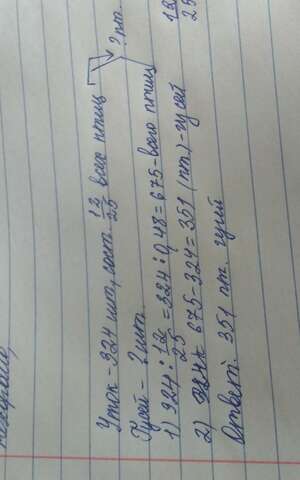 ? пт.
Уток - 324 шт, сост. 12/25 всех птиц
Гусей - ? шт.
1) 324 : 12/25 = 324 : 0,48 = 675 - всего птиц
2) 675 - 324 = 351 (пт) - гусей
Ответ: 351 пт. гусей